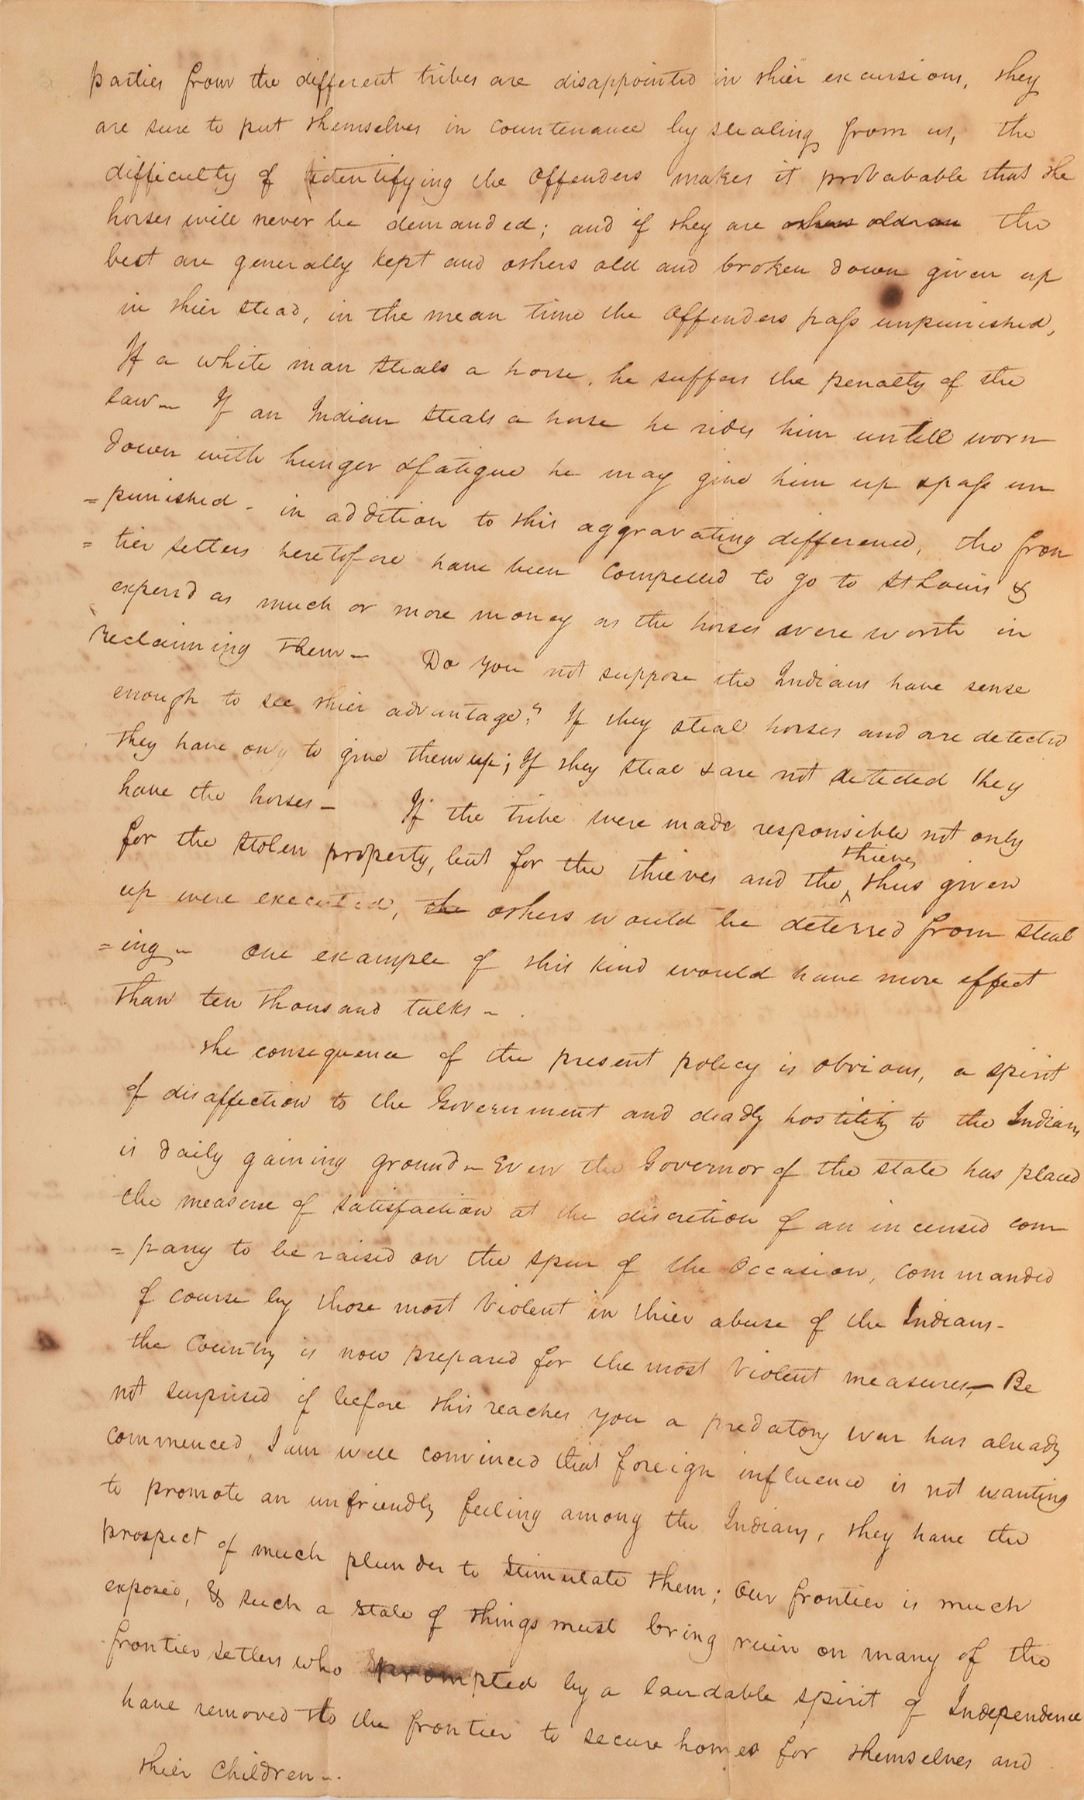 parties from the different tribes are disappointed in thier excursions, they
are sure to put themselves in countenance by stealing from us, the
difficulty of identifying the offenders makes it probabable that the
horses will never be demanded; and if they are others old on the
best are generally kept and others old and broken down given up
in thier stead, in the mean time the offenders pass unpunished,
If a white man steals a horse, he suffers the penalty of the
law— If an Indian steals a horse he rides him untill worn
down with hunger & fatigue he may give him up & pass un
=punished - in addition to this aggravating difference, the fron
=tier setlers heretofore have been compelled to go to St Louis &
expend as much or more money as the horses were worth in
reclaiming them— Do you not suppose the Indians have sense
enough to see thier advantage? If they steal horses and are detected
they have only to give them up; If they steal & are not detected they
have the horses— If the tribe were made responsible not only
for the stolen property, but for the thieves and the thieves thus given
up were executed, the others would be deterred from steal
=ing— one example of this kind would have more effect
than ten thousand talks—.
The consequence of the present policy is obvious, a spirit
of disaffection to the Government and deadly hostility to the Indians
is daily gaining ground— Even the Governor of the state has placed
the measure of satisfaction at the discretion of an incensed com
=pany to be raised on the spur of the Occasion, commanded
of course by those most violent in thier abuse of the Indians-
the Country is now prepared for the most violent measures— Be
not surprised if before this reaches you a predatory war has already
commenced, I am well convinced that foreign influence is not wanting
to promote an unfriendly feeling among the Indians, they have the
prospect of much plunder to stimulate them; Our frontier is much
exposed, & such a state of things must bring ruin on many of the
frontier setlers who prompted by a laudable spirit of Independence
have removed to the frontier to secure homes for themselves and
thier children—.